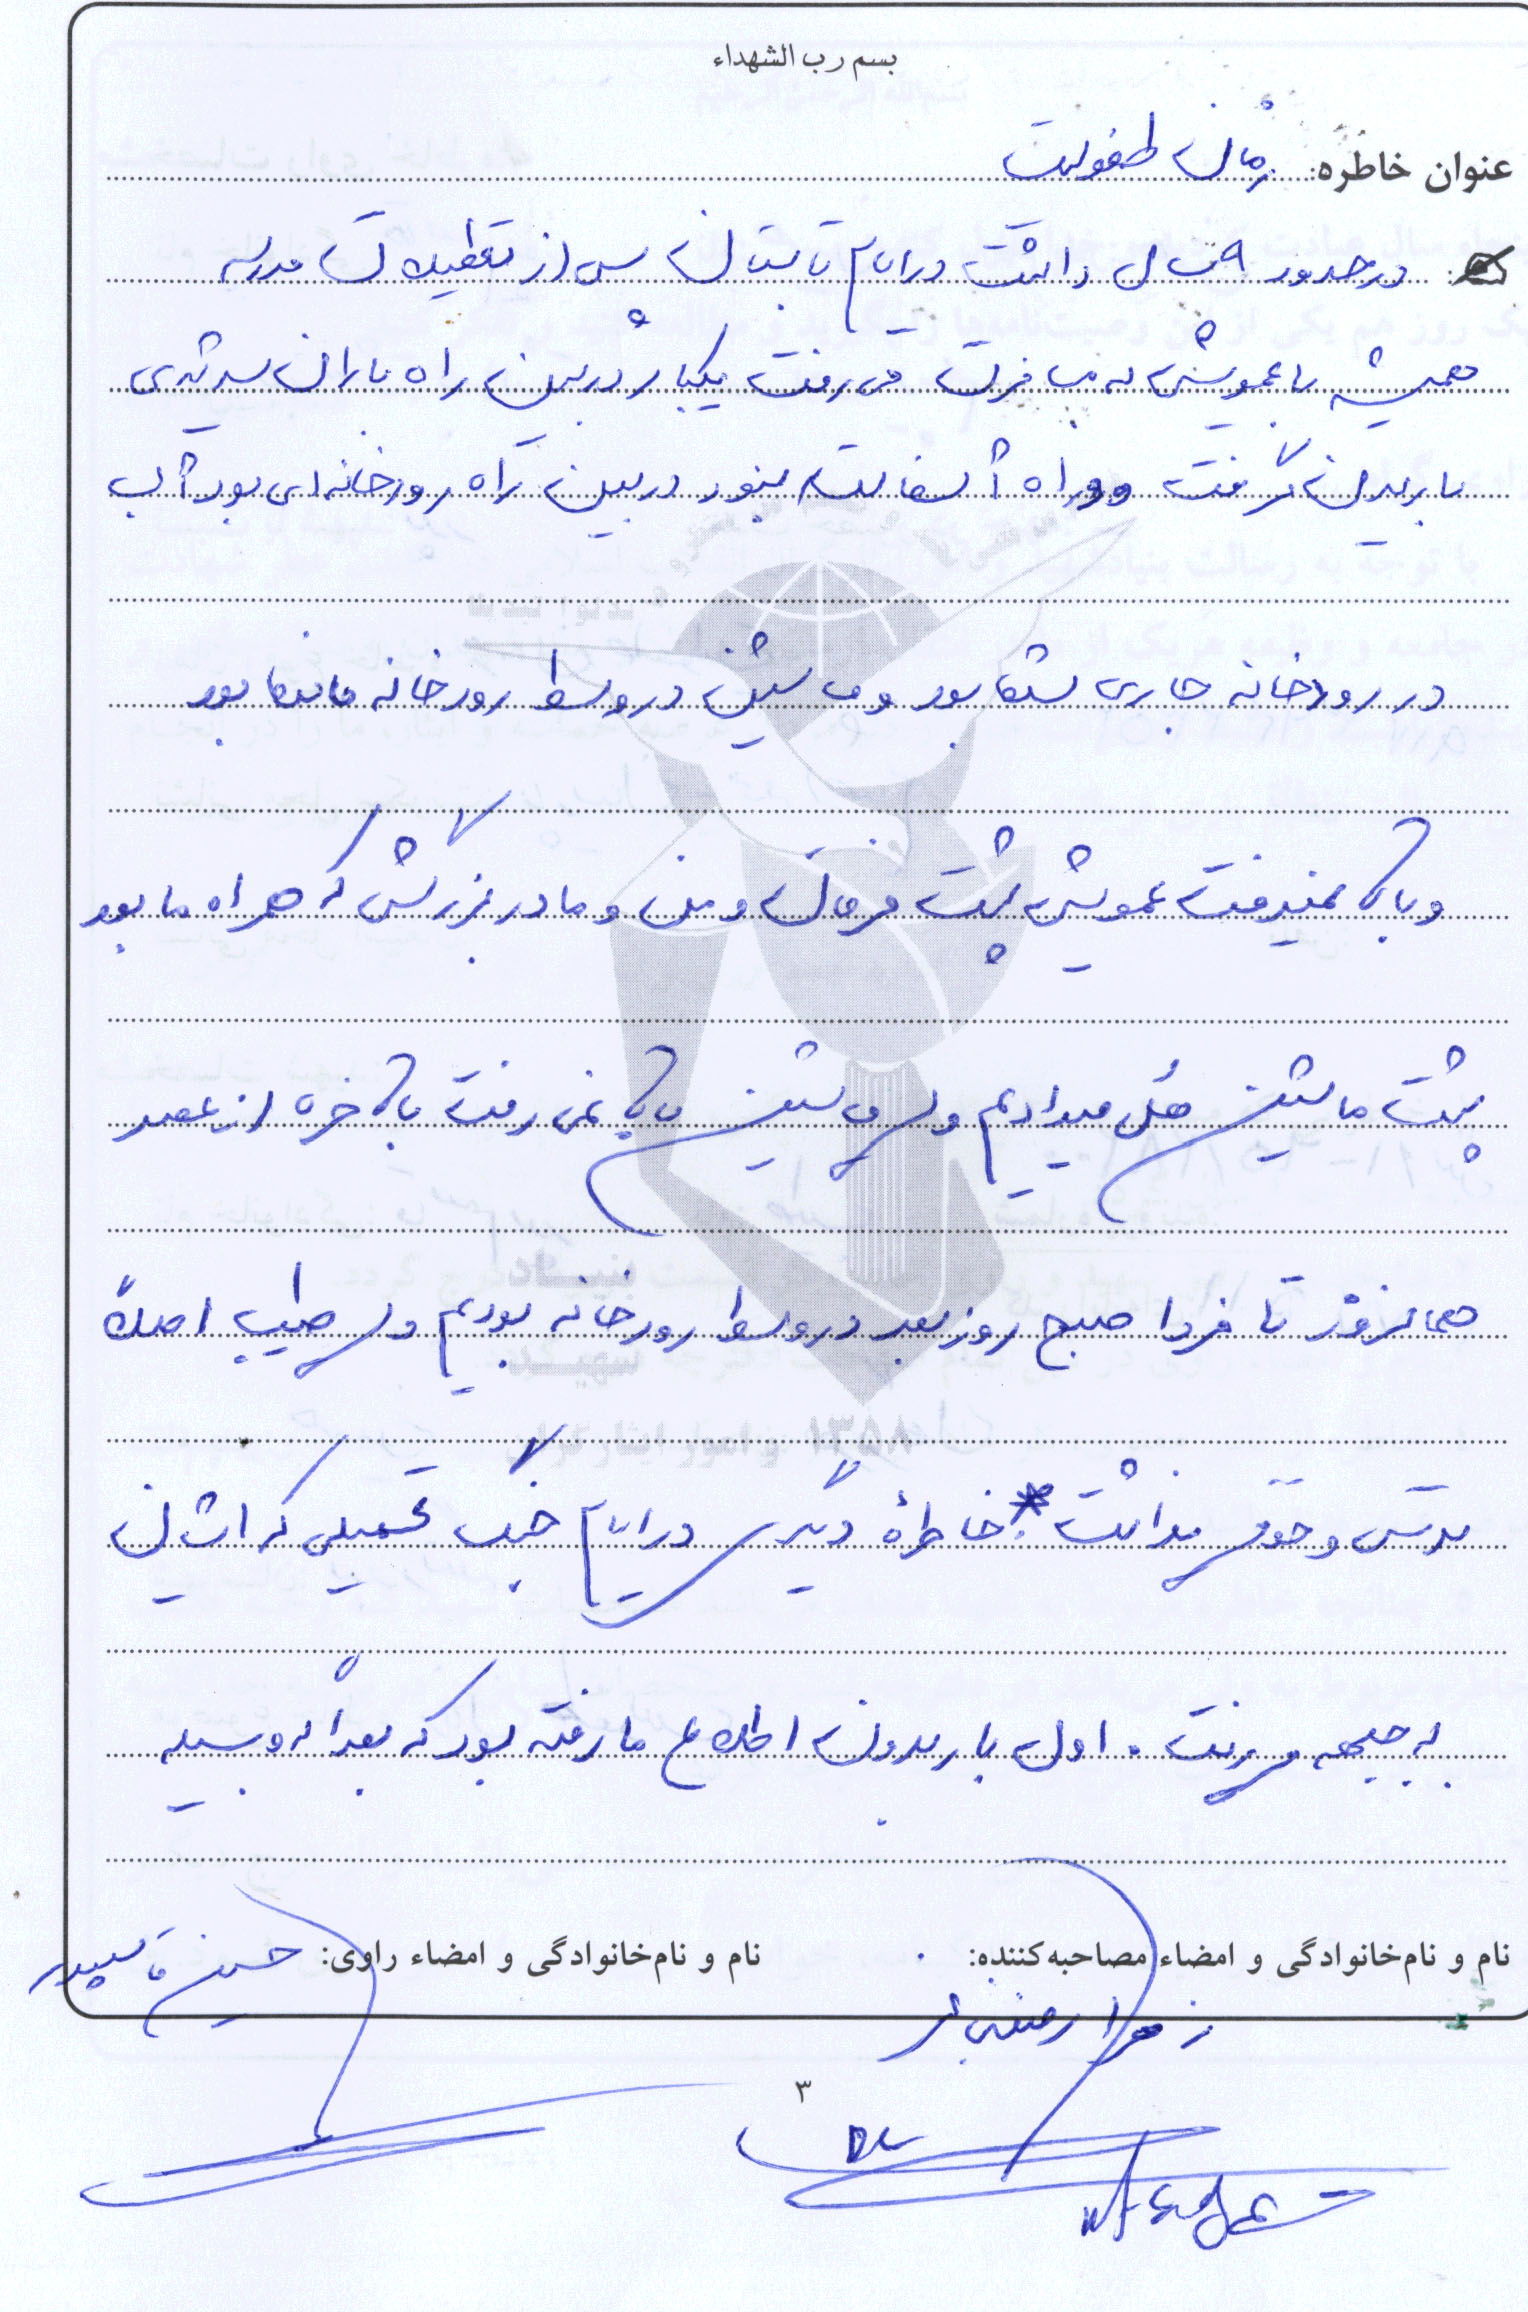 بسم رب الشهداء
عنوان خاطره: زمان طفولیت
در حدود ۹ سال داشت در ایام تابستان پس از تعطیلات مدرسه
همیشه با عمویش به مسافرت می رفت یکبار در بین راه باران شدیدی
باریدن گرفت و راه آسفالت نبود در بین راه رودخانه ای بود آب
در رودخانه جاری شده بود و ماشین در وسط رودخانه مانده بود
و بالا نمیرفت عمویش پشت فرمان و من و مادربزرگش که همراه ما بود
پشت ماشین هل میدادیم ولی ماشین بالا نمی رفت بالاخره از عصر
همانروز تا فردا صبح روز بعد در وسط رودخانه بودیم ولی طیب اصلاً
ترس و خوفی نداشت * خاطرهٔ دیگری در ایام جنگ تحمیلی که ایشان
به جبهه میرفت . اول بار بدون اطلاع ما رفته بود که بعداً بوسیله
نام و نام‌خانوادگی و امضاء مصاحبه‌کننده:
نام و نام‌خانوادگی و امضاء راوی: حسین
زهرا
۳
بنیاد
شهید
و امور ایثارگران ۱۳۵۸